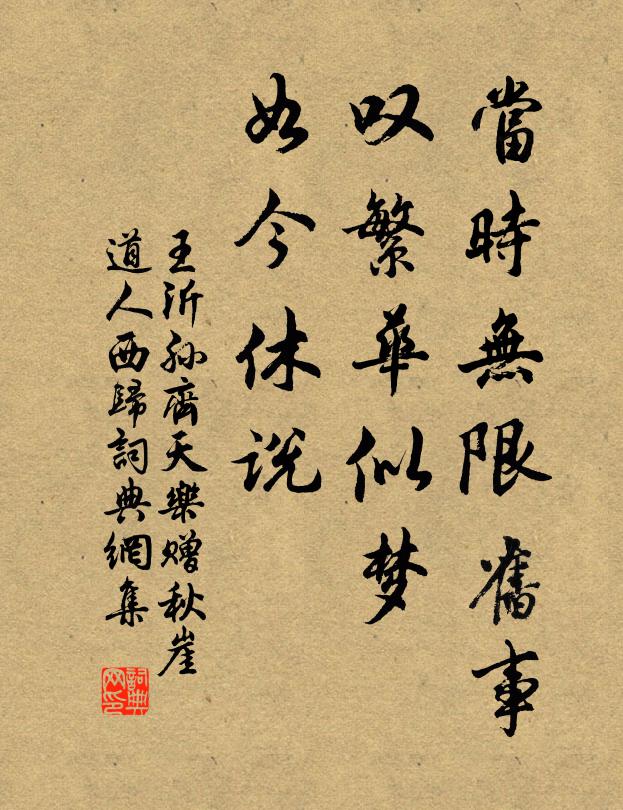 當時無限舊事
叹繁華似梦
如今休说
王沂孙齊天樂赠秋崖
道人西歸詞典網集
詞典网印